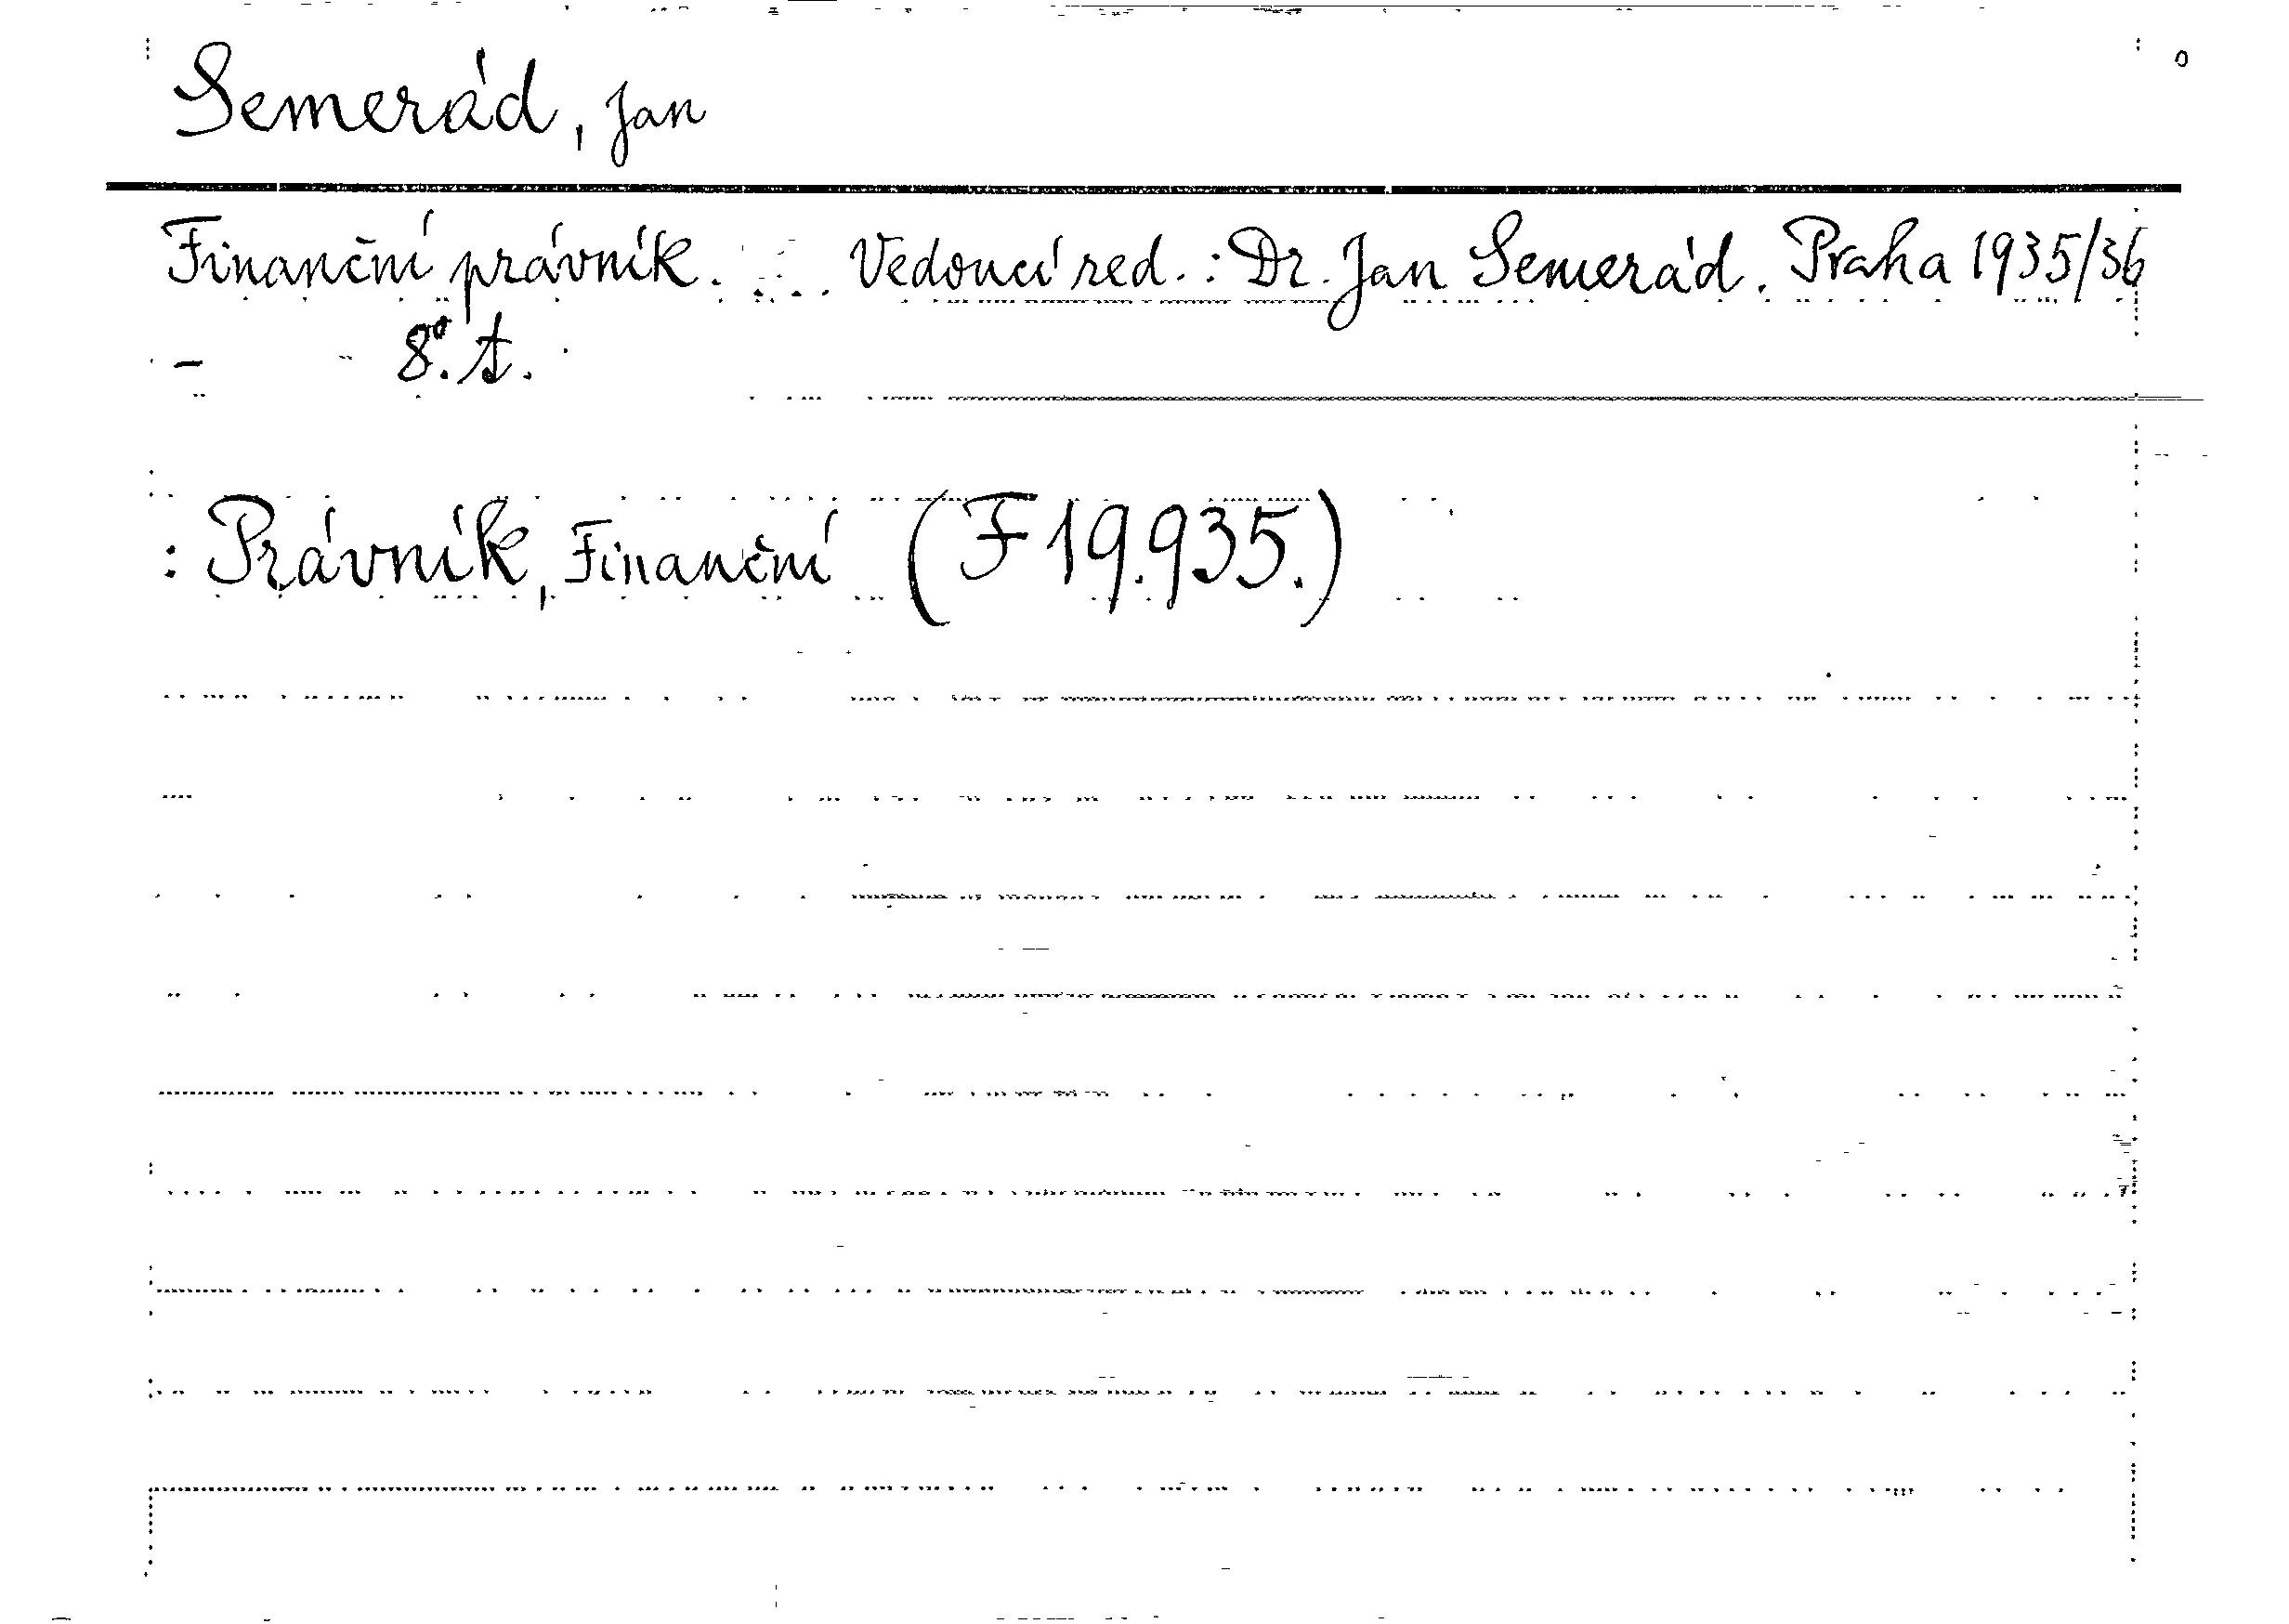 Semerád, Jan
Finanční právník. ... Vedoucí red.: Dr. Jan Semerád. Praha 1935/36
- 8°. A.
: Právník, Finanční (F 19.935.)